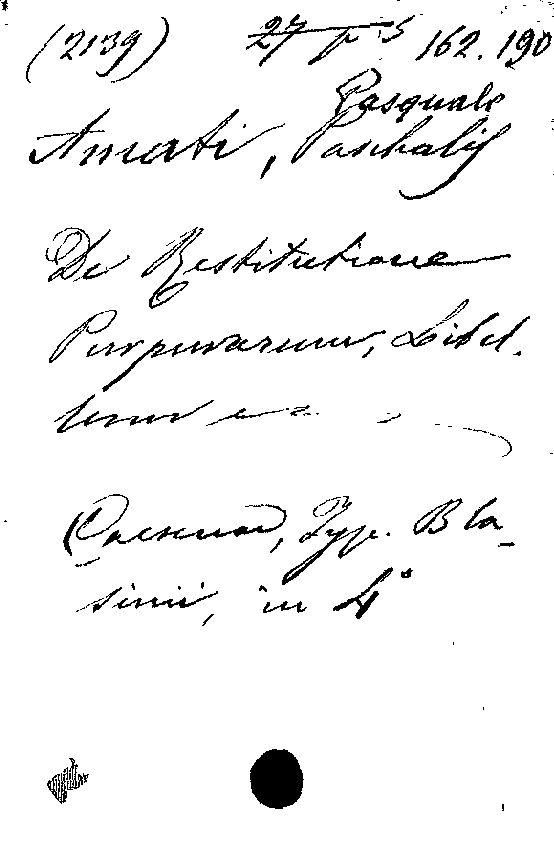 (2139) 162.190
Pasquale
Amati, Paschalis
De Restitutione
Purpurarum, Libel-
lum
Caesenae, Typ. Bla-
sinii, in 4°